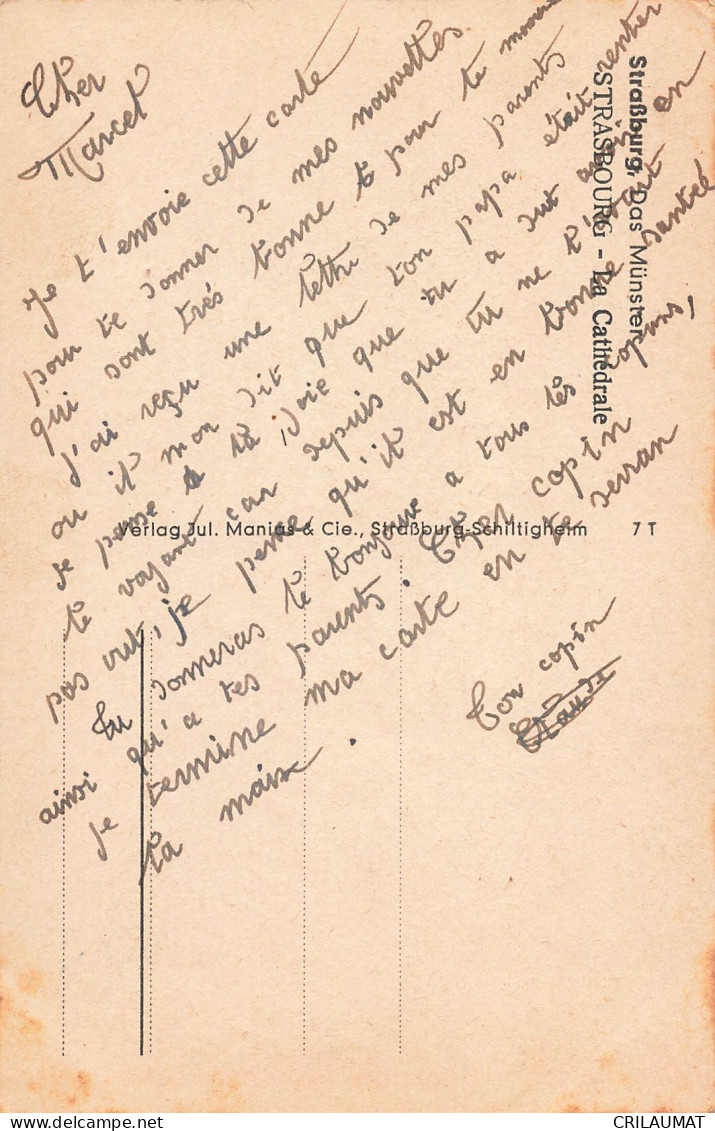 Cher
Marcel
Je t'envoie cette carte
pour te donner de mes nouvelles
qui sont trés bonne et pour te
J'ai reçu une lettre de mes parents
ou il mon dit que ton papa était rentrer
Je pense a la Joie que tu a dut avoir en
le voyant car depuis que tu ne l'
pas vut, je pense qu'il est en bonne santée
Tu donneras le bonjour a tous les copins,
ainsi qu'a tes parents. Cher copin
Je termine ma carte en te serran
la main.
Ton copin
Claude
Straßburg, Das Münster
STRASBOURG - La Cathédrale
Verlag Jul. Manias & Cie., Straßburg-Schiltigheim 7 T
CRILAUMAT